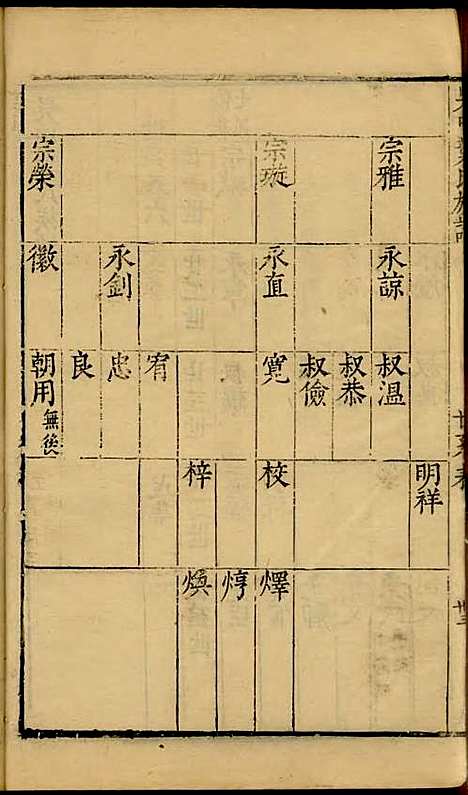 宗雅
宗璇
宗榮
永諒
永直
永劍
徽
叔溫
叔恭
叔儉
寬
宥
忠
良
朝用無後
明祥
校
梓
燡
焞
煥